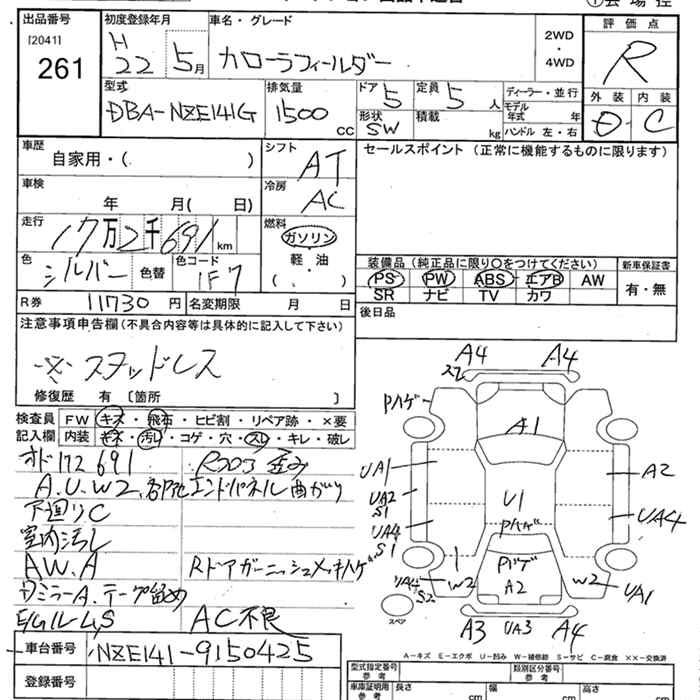 出品番号
[2041]
261
初度登録年月
H 22 5月
車名・グレード
カローラフィールダー
2WD
・
4WD
評価点
R
外装 内装
D・C
型式
DBA-NZE141G
排気量
1500
CC
ドア
5
定員
5 人
形状
SW
積載
kg
ディーラー・並行
モデル
年式 年
ハンドル 左・右
車歴
自家用・( )
シフト
AT
セールスポイント (正常に機能するものに限ります)
車検
年 月( 日)
冷房
AC
走行
17万2千691km
燃料
ガソリン
軽・油
( . )
色
シルバー
色替
色コード
1F7
装備品 (純正品に限り〇をつけてください)
新車保証書
PS PW ABS エアB AW
SR ナビ TV カワ
有・無
R券 11730 円
名変期限 月 日
後日品
注意事項申告欄(不具合内容等は具体的に記入して下さい)
※スタッドレス
修復歴 有 〔箇所 〕
検査員 FW キズ・飛石・ヒビ割・リペア跡・×要
記入欄 内装 キズ・汚れ・コゲ・穴・スレ・キレ・破レ
オド172691
Rコーコ歪み
A.U.W2.各部他エンドパネル曲がり
下廻りC
室内汚れ
AW.A
Rドアガーニッシュメッキハゲ
Dミラー A.テープ留め
AC不良
車台番号 NZE141-9150425
登録番号
A4
A4
Pハゲ
A1
UA1
A2
UA2
S1
U1
UA4
S1
UA4
Pハゲ
Pハゲ
A2
UA4
S2
W2
W2
UA1
スペア
A3
UA3
A4
A-キズ E-エクボ U-凹み W-補修跡 S-サビ C-腐食 ××-交換済
型式指定番号
参考
類別区分番号
参考
車庫証明用
参考
長さ cm
幅 cm
高さ cm